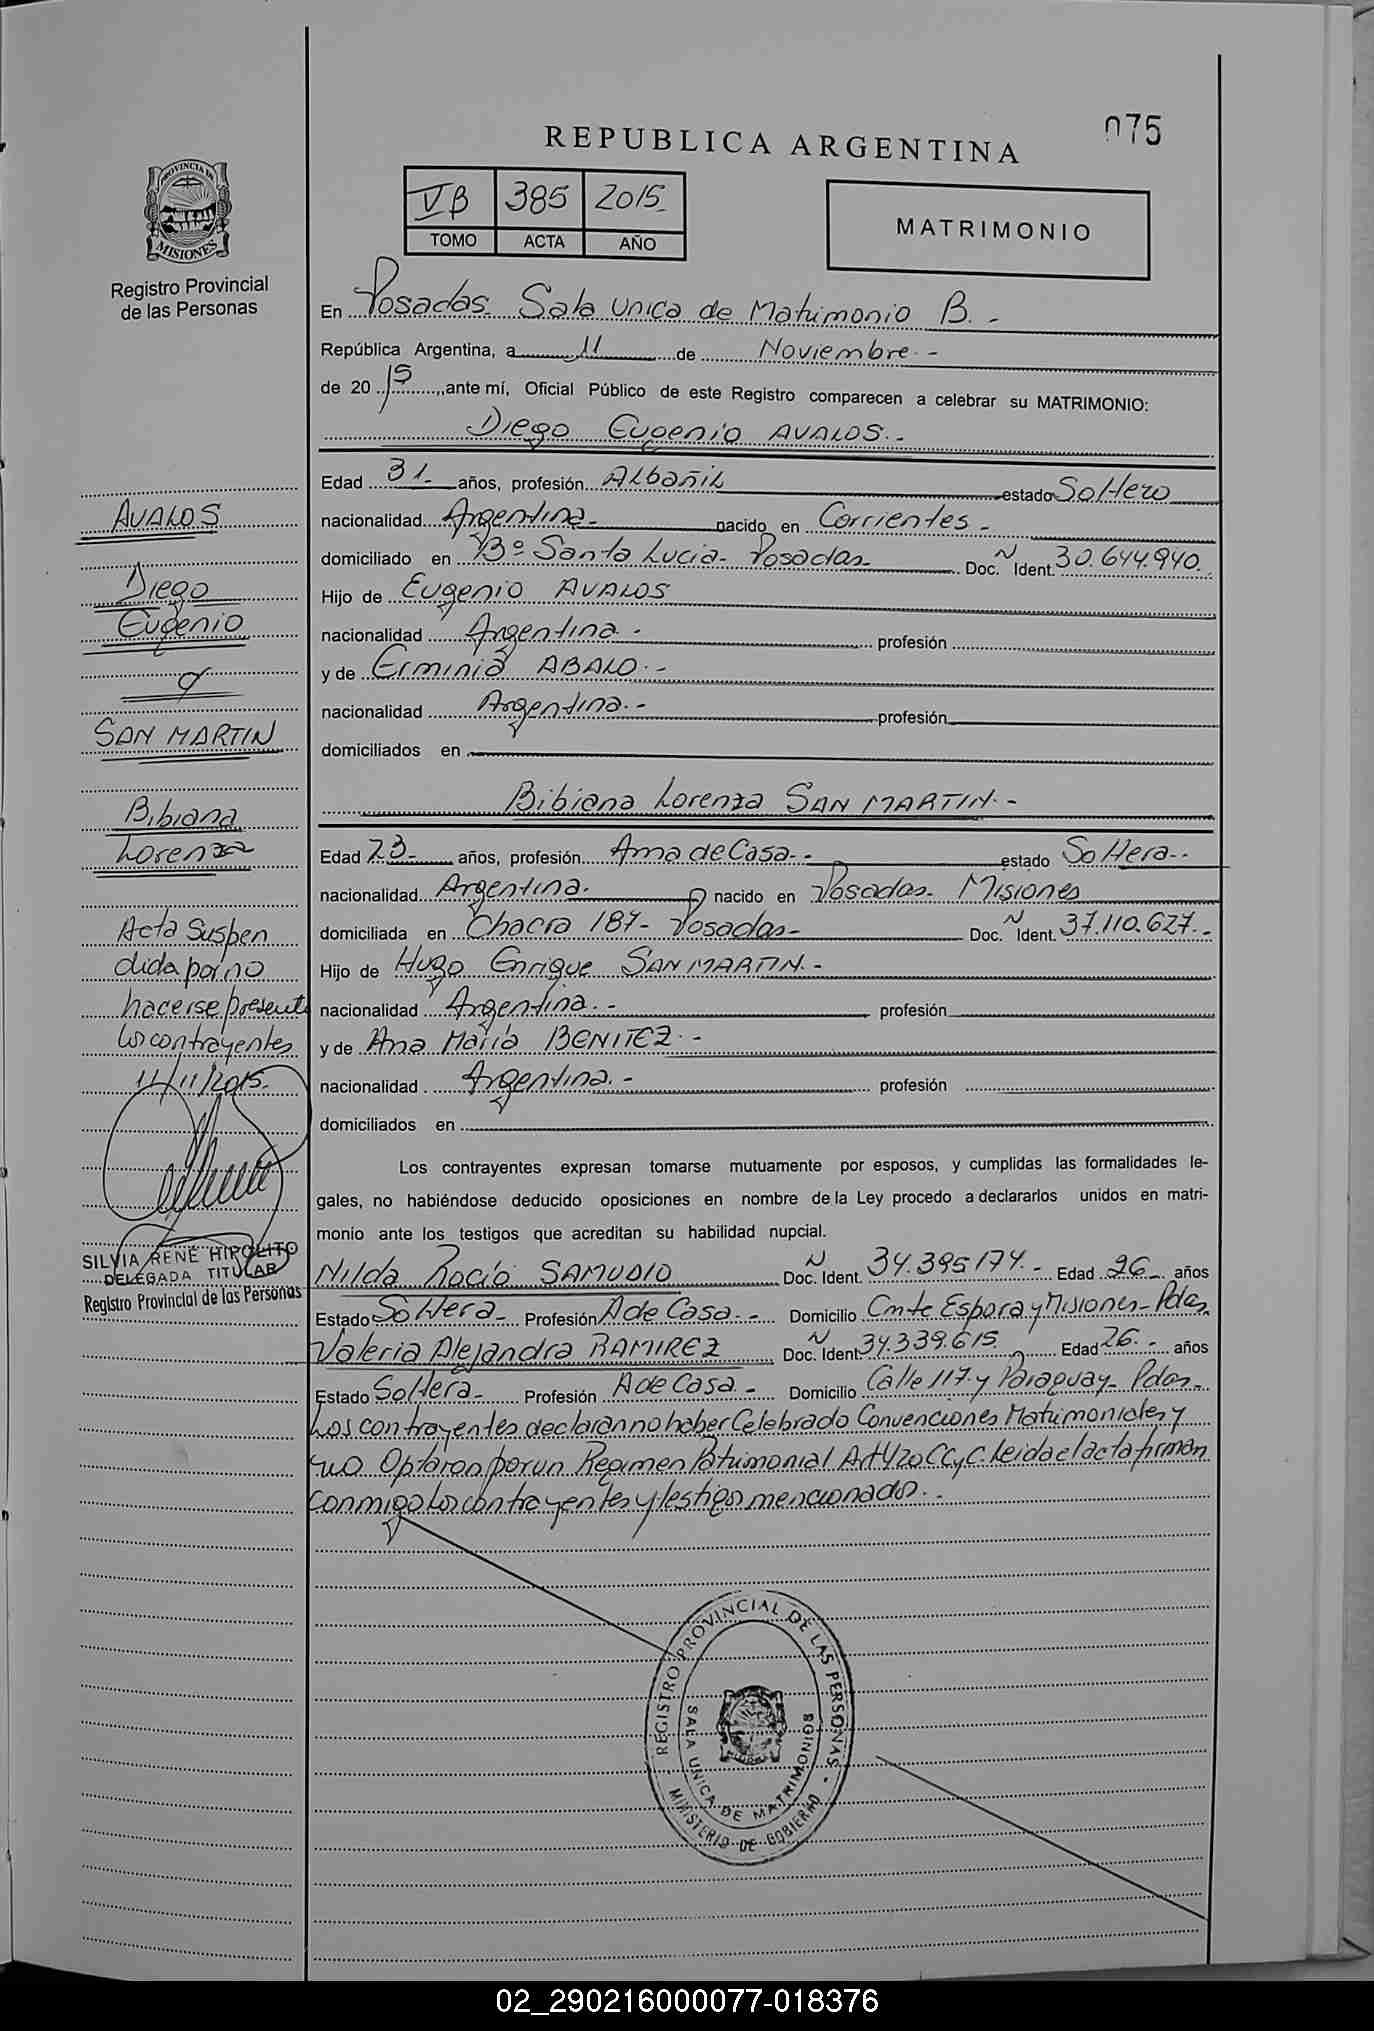 075
REPUBLICA ARGENTINA
VB 385 2015
TOMO ACTA AÑO
MATRIMONIO
PROVINCIA DE
MISIONES
Registro Provincial
de las Personas
En Posadas Sala Unica de Matrimonio B.-
República Argentina, a 11 de Noviembre.-
de 2015, ante mí, Oficial Público de este Registro comparecen a celebrar su MATRIMONIO:
Diego Eugenio AVALOS.-
Edad 31.- años, profesión Albañil estado Soltero
nacionalidad Argentina.- nacido en Corrientes.-
domiciliado en Bº Santa Lucia- Posadas- Doc. N Ident. 30.644.940.
Hijo de Eugenio AVALOS
nacionalidad Argentina.- profesión
y de Erminia ABALO.-
nacionalidad Argentina.- profesión
domiciliados en
Bibiana Lorenza SAN MARTIN.-
Edad 23.- años, profesión Ama de Casa.- estado Soltera.-
nacionalidad Argentina.- nacido en Posadas- Misiones
domiciliada en Chacra 187- Posadas- Doc. N Ident. 37.110.627.-
Hijo de Hugo Enrique SAN MARTIN.-
nacionalidad Argentina.- profesión
y de Ana María BENITEZ.-
nacionalidad Argentina.- profesión
domiciliados en
Los contrayentes expresan tomarse mutuamente por esposos, y cumplidas las formalidades le-
gales, no habiéndose deducido oposiciones en nombre de la Ley procedo a declararlos unidos en matri-
monio ante los testigos que acreditan su habilidad nupcial.
Nilda Rocío SAMUDIO Doc. N Ident. 34.395.174.- Edad 26.- años
Estado Soltera- Profesión A de Casa.- Domicilio Cmte Espora y Misiones- Pdas.
Valeria Alejandra RAMIREZ Doc. N Ident. 34.339.615. Edad 26.- años
Estado Soltera- Profesión A de Casa.- Domicilio Calle 117 y Paraguay- Pdas-
Los contrayentes declaran no haber Celebrado Convenciones Matrimoniales y
no Optaron por un Regimen Patrimonial Art 420 CCyC. Leida el acta firman
conmigo los contrayentes y testigos mencionados.-
AVALOS
Diego
Eugenio
y
SAN MARTIN
Bibiana
Lorenza
Acta Suspen
dida por no
hacerse presente
los contrayentes
11/11/2015.
SILVIA RENÉ HIPOLITO
DELEGADA TITULAR
Registro Provincial de las Personas
REGISTRO PROVINCIAL DE LAS PERSONAS -
SALA UNICA DE MATRIMONIOS
MINISTERIO DE GOBIERNO
02_290216000077-018376